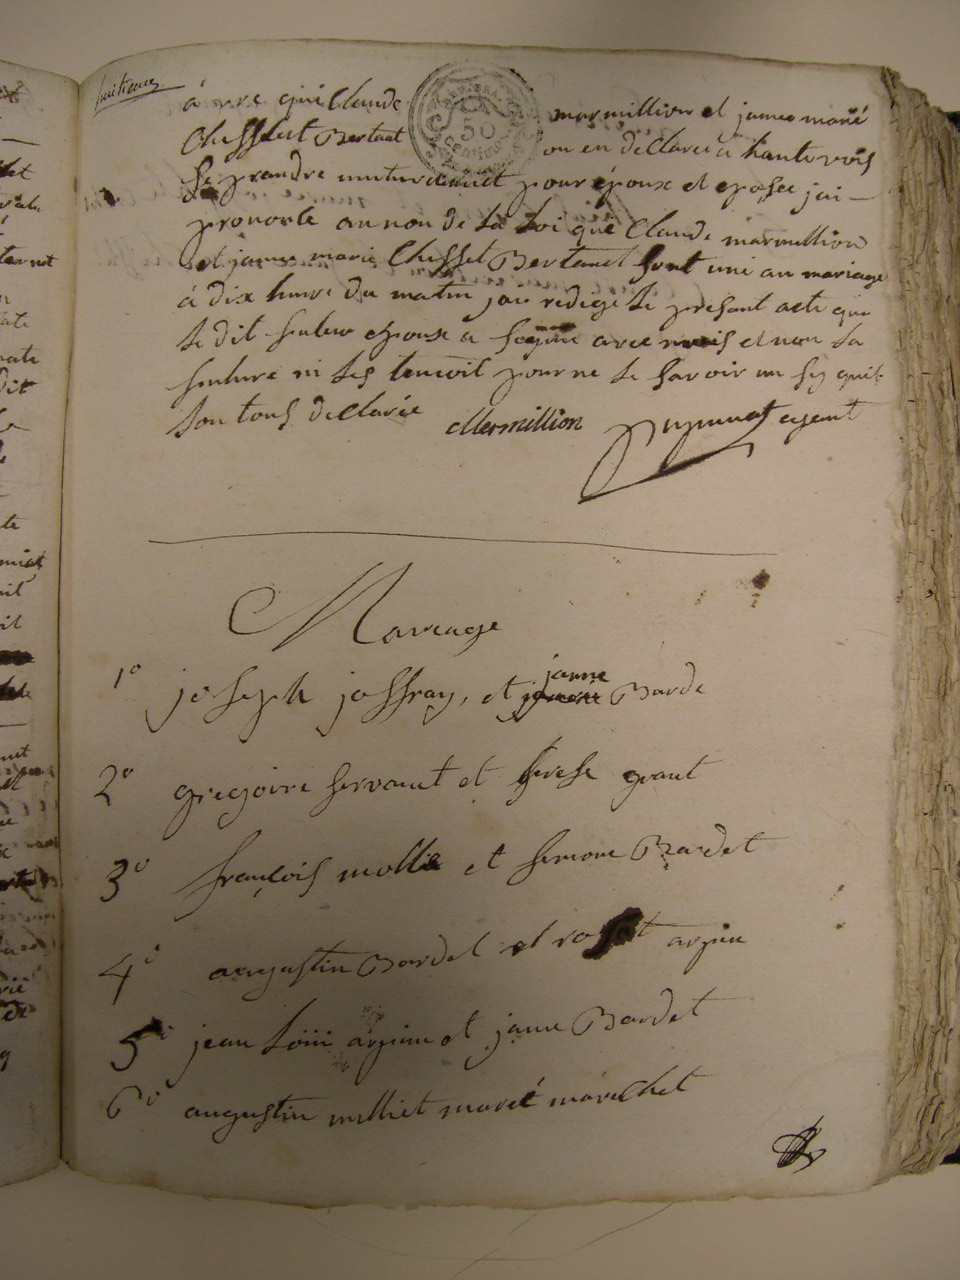 huitieme
á vre qui Claude marmillion et janne marié
Chessest Bertaut on en déClaré a haute vois
se prandre mutuelement pour époux et eposee jai
prononse au non de la Loi que Claude marmillion
et janne marie Chessel Bertaut sont uni an mariage
á dix heure du matin jai redigé le présant acte que
le dit futeur epoux a signé avec mois et non la
future ni les temoit pour ne le savoir un sy quil
son tous déClarée Mermillion agent
REP. FRA.
50
Centimes
Mariage
1° joseph joffray, et janne Barde
2° gregoire servant et terese grant
3° françois mollie et simone Bardet
4° augustin Bardet et arpin
5° jean Loiii arpin et janne Bardet
6° augustin milliet marié marechet